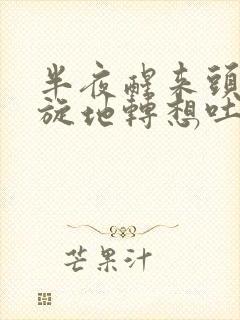 半夜醒来頭
旋地轉想吐
芒果汁